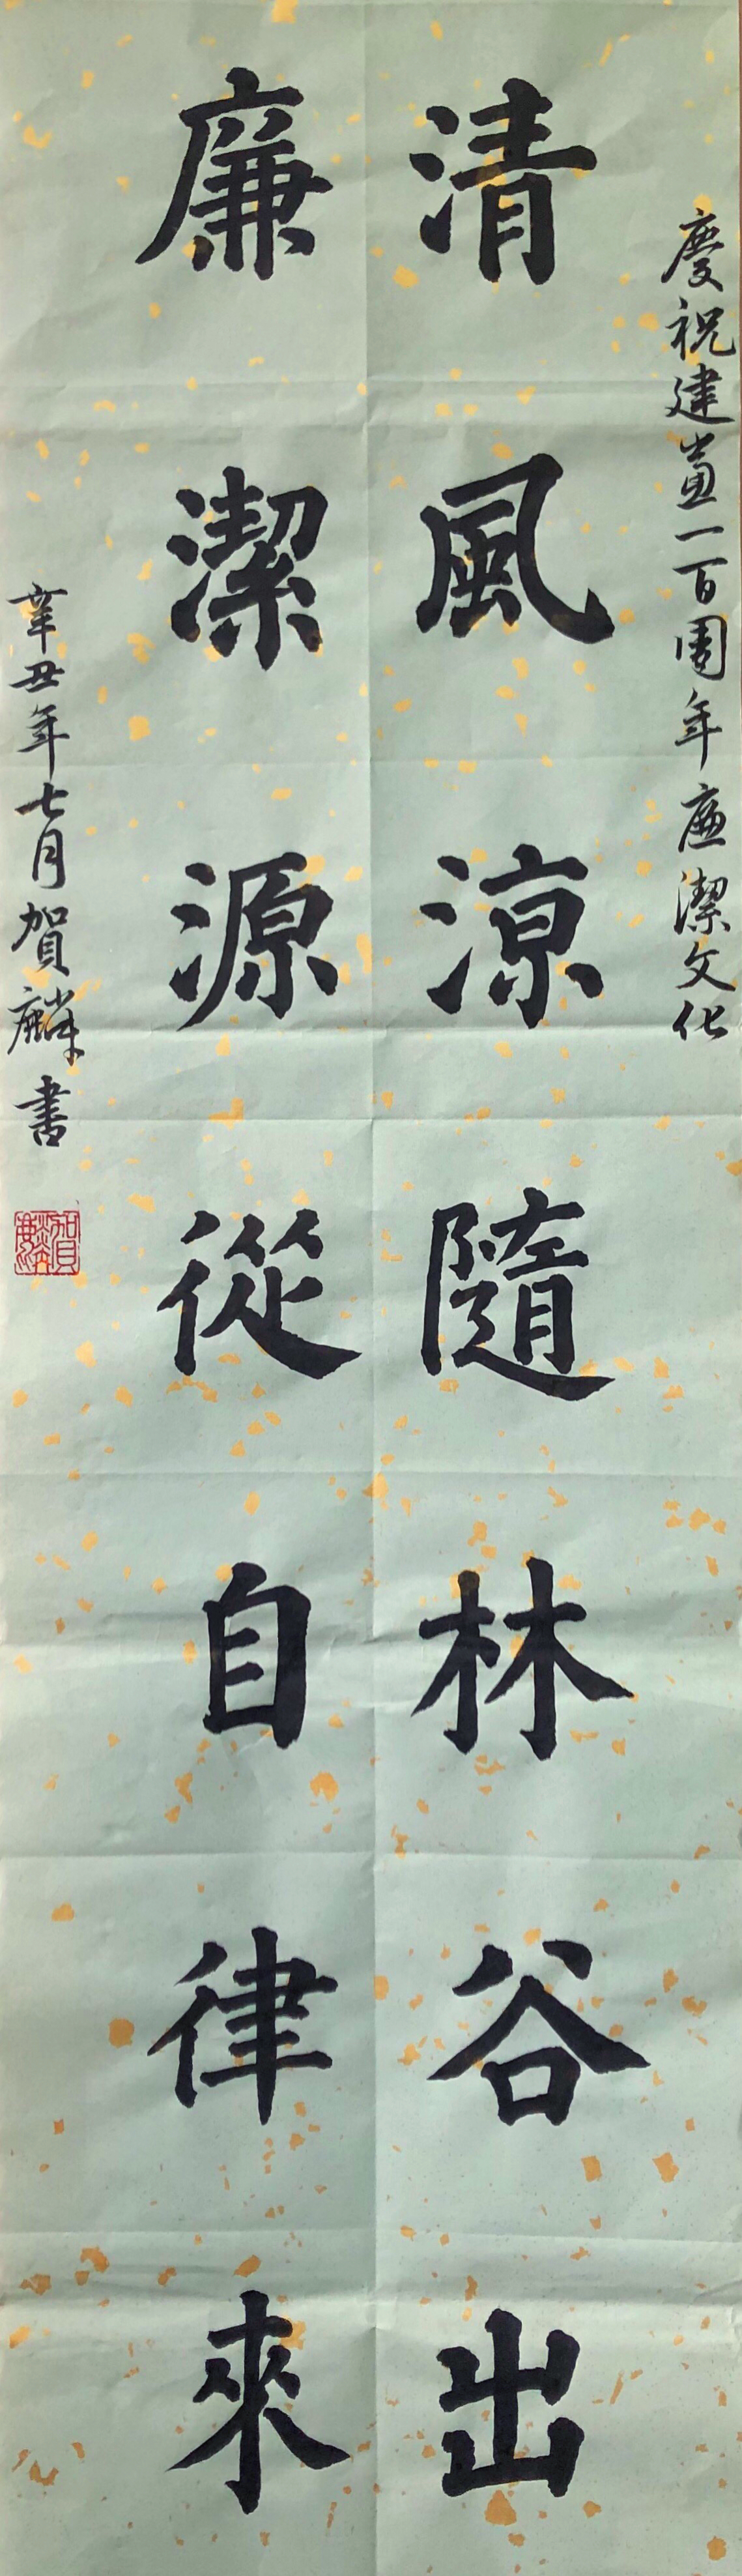 慶祝建黨一百周年廉潔文化
清風涼隨林谷出
廉潔源從自律來
辛丑年七月賀麟書
賀麟